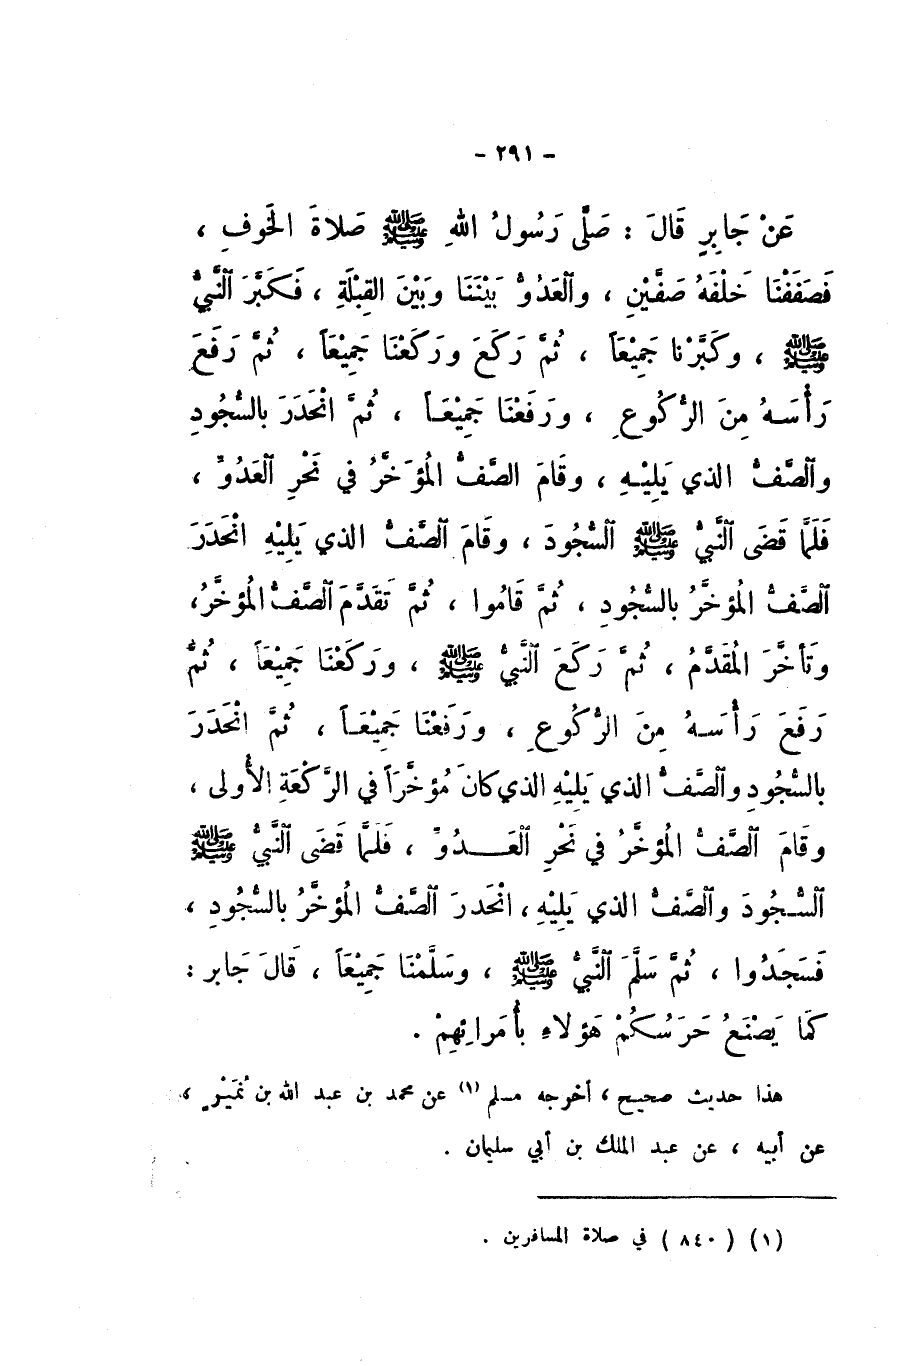 - ٢٩١ -
عَنْ جَابِرٍ قَالَ : صَلَّى رَسُولُ اللهِ ﷺ صَلاةَ الخَوفِ ،
فَصَفَفْنَا خَلْفَهُ صَفَّيْنِ ، والْعَدُوُّ بَيْنَنَا وبَيْنَ القِبْلَةِ ، فَكَبَّرَ النَّبيُّ
ﷺ ، وكَبَّرْنا جَمِيْعَاً ، ثُمَّ رَكَعَ ورَكَعْنَا جَمِيْعَاً ، ثُمَّ رَفَعَ
رَأْسَهُ مِنَ الرُّكُوعِ ، ورَفَعْنَا جَمِيْعَاً ، ثُمَّ انْحَدَرَ بالسُّجُودِ
والصَّفُّ الذي يَلِيْهِ ، وقَامَ الصَّفُّ المُؤَخَّرُ في نَحْرِ العَدُوِّ ،
فَلَمَّا قَضَى النَّبيُّ ﷺ السُّجُودَ ، وقَامَ الصَّفُّ الذي يَلِيْهِ انْحَدَرَ
الصَّفُّ المُؤخَّرُ بالسُّجُودِ ، ثُمَّ قَامُوا ، ثُمَّ تَقَدَّمَ الصَّفُّ المُؤخَّرُ،
وتَأخَّرَ المُقَدَّمُ ، ثُمَّ رَكَعَ النَّبيُّ ﷺ ، ورَكَعْنَا جَمِيْعَاً ، ثُمَّ
رَفَعَ رَأْسَهُ مِنَ الرُّكُوعِ ، ورَفَعْنَا جَمِيْعَاً ، ثُمَّ انْحَدَرَ
بالسُّجُودِ والصَّفُّ الذي يَلِيْهِ الذي كانَ مُؤخَّرَاً في الرَّكْعَةِ الأُولى ،
وقَامَ الصَّفُّ المُؤخَّرُ في نَحْرِ العَدُوِّ ، فَلَمَّا قَضَى النَّبيُّ ﷺ
السُّجُودَ والصَّفُّ الذي يَلِيْهِ ، انْحَدرَ الصَّفُّ المُؤخَّرُ بالسُّجُودِ ،
فَسَجَدُوا ، ثُمَّ سَلَّمَ النَّبيُّ ﷺ ، وسَلَّمْنَا جَمِيْعَاً ، قَالَ جَابر :
كَمَا يَصْنَعُ حَرَسُكُمْ هَؤلاءِ بأُمَرائِهِمْ .
هذا حديث صحيح ، أخرجه مسلم (١) عن محمد بن عبد الله بن نُمَيْرٍ ،
عن أبيه ، عن عبد الملك بن أبي سليمان .
(١) ( ٨٤٠ ) في صلاة المسافرين .